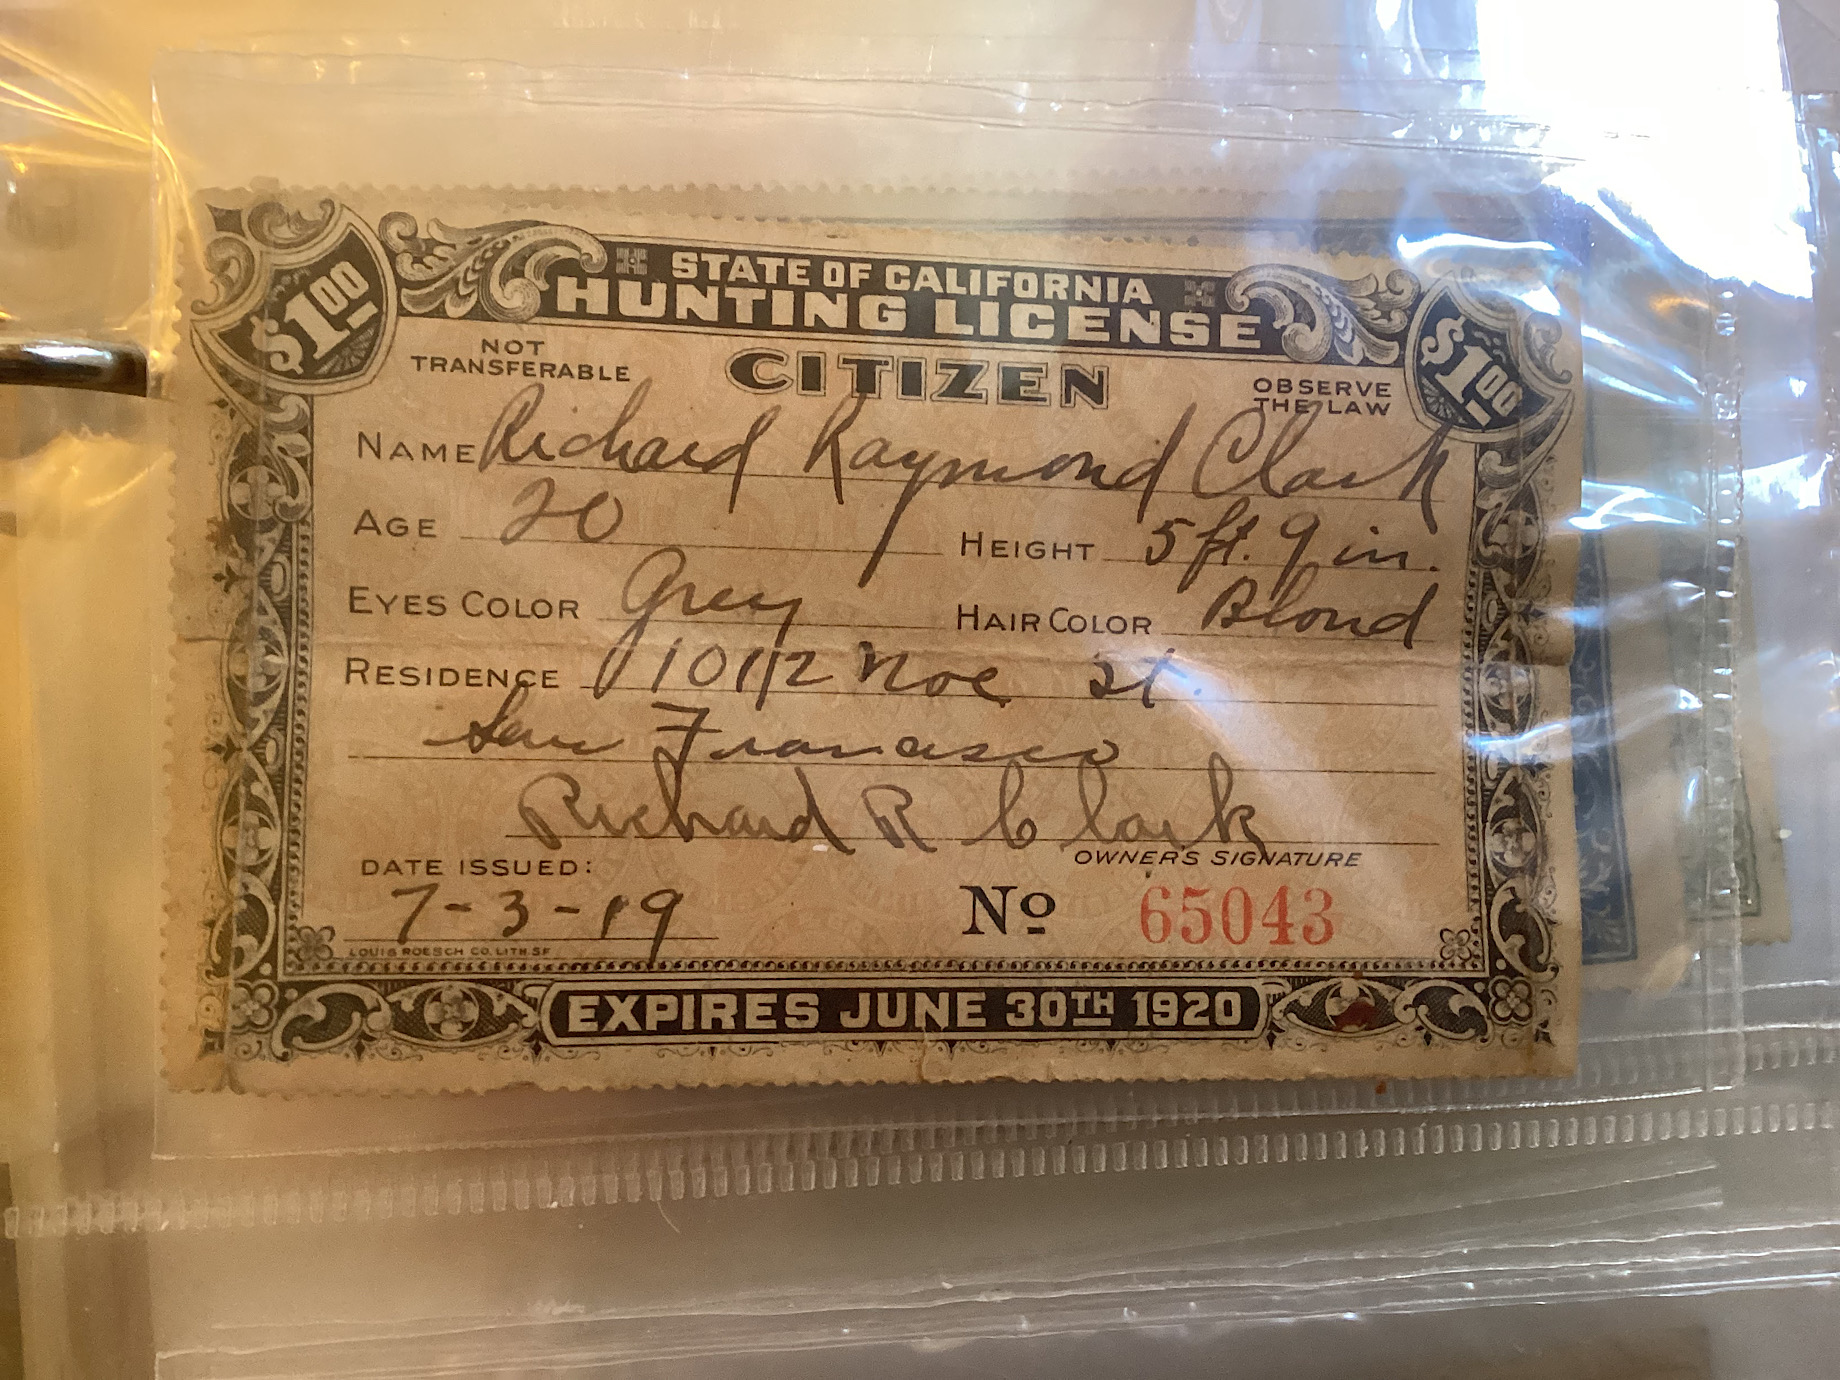 $1.00 STATE OF CALIFORNIA $1.00
HUNTING LICENSE
NOT TRANSFERABLE CITIZEN OBSERVE THE LAW
NAME Richard Raymond Clark
AGE 20 HEIGHT 5 ft. 9 in.
EYES COLOR Grey HAIR COLOR Blond
RESIDENCE 1012 Noe St.
San Francisco
Richard R Clark
DATE ISSUED: OWNERS SIGNATURE
7-3-19 No 65043
LOUIS ROESCH CO. LITH. SF
EXPIRES JUNE 30TH 1920